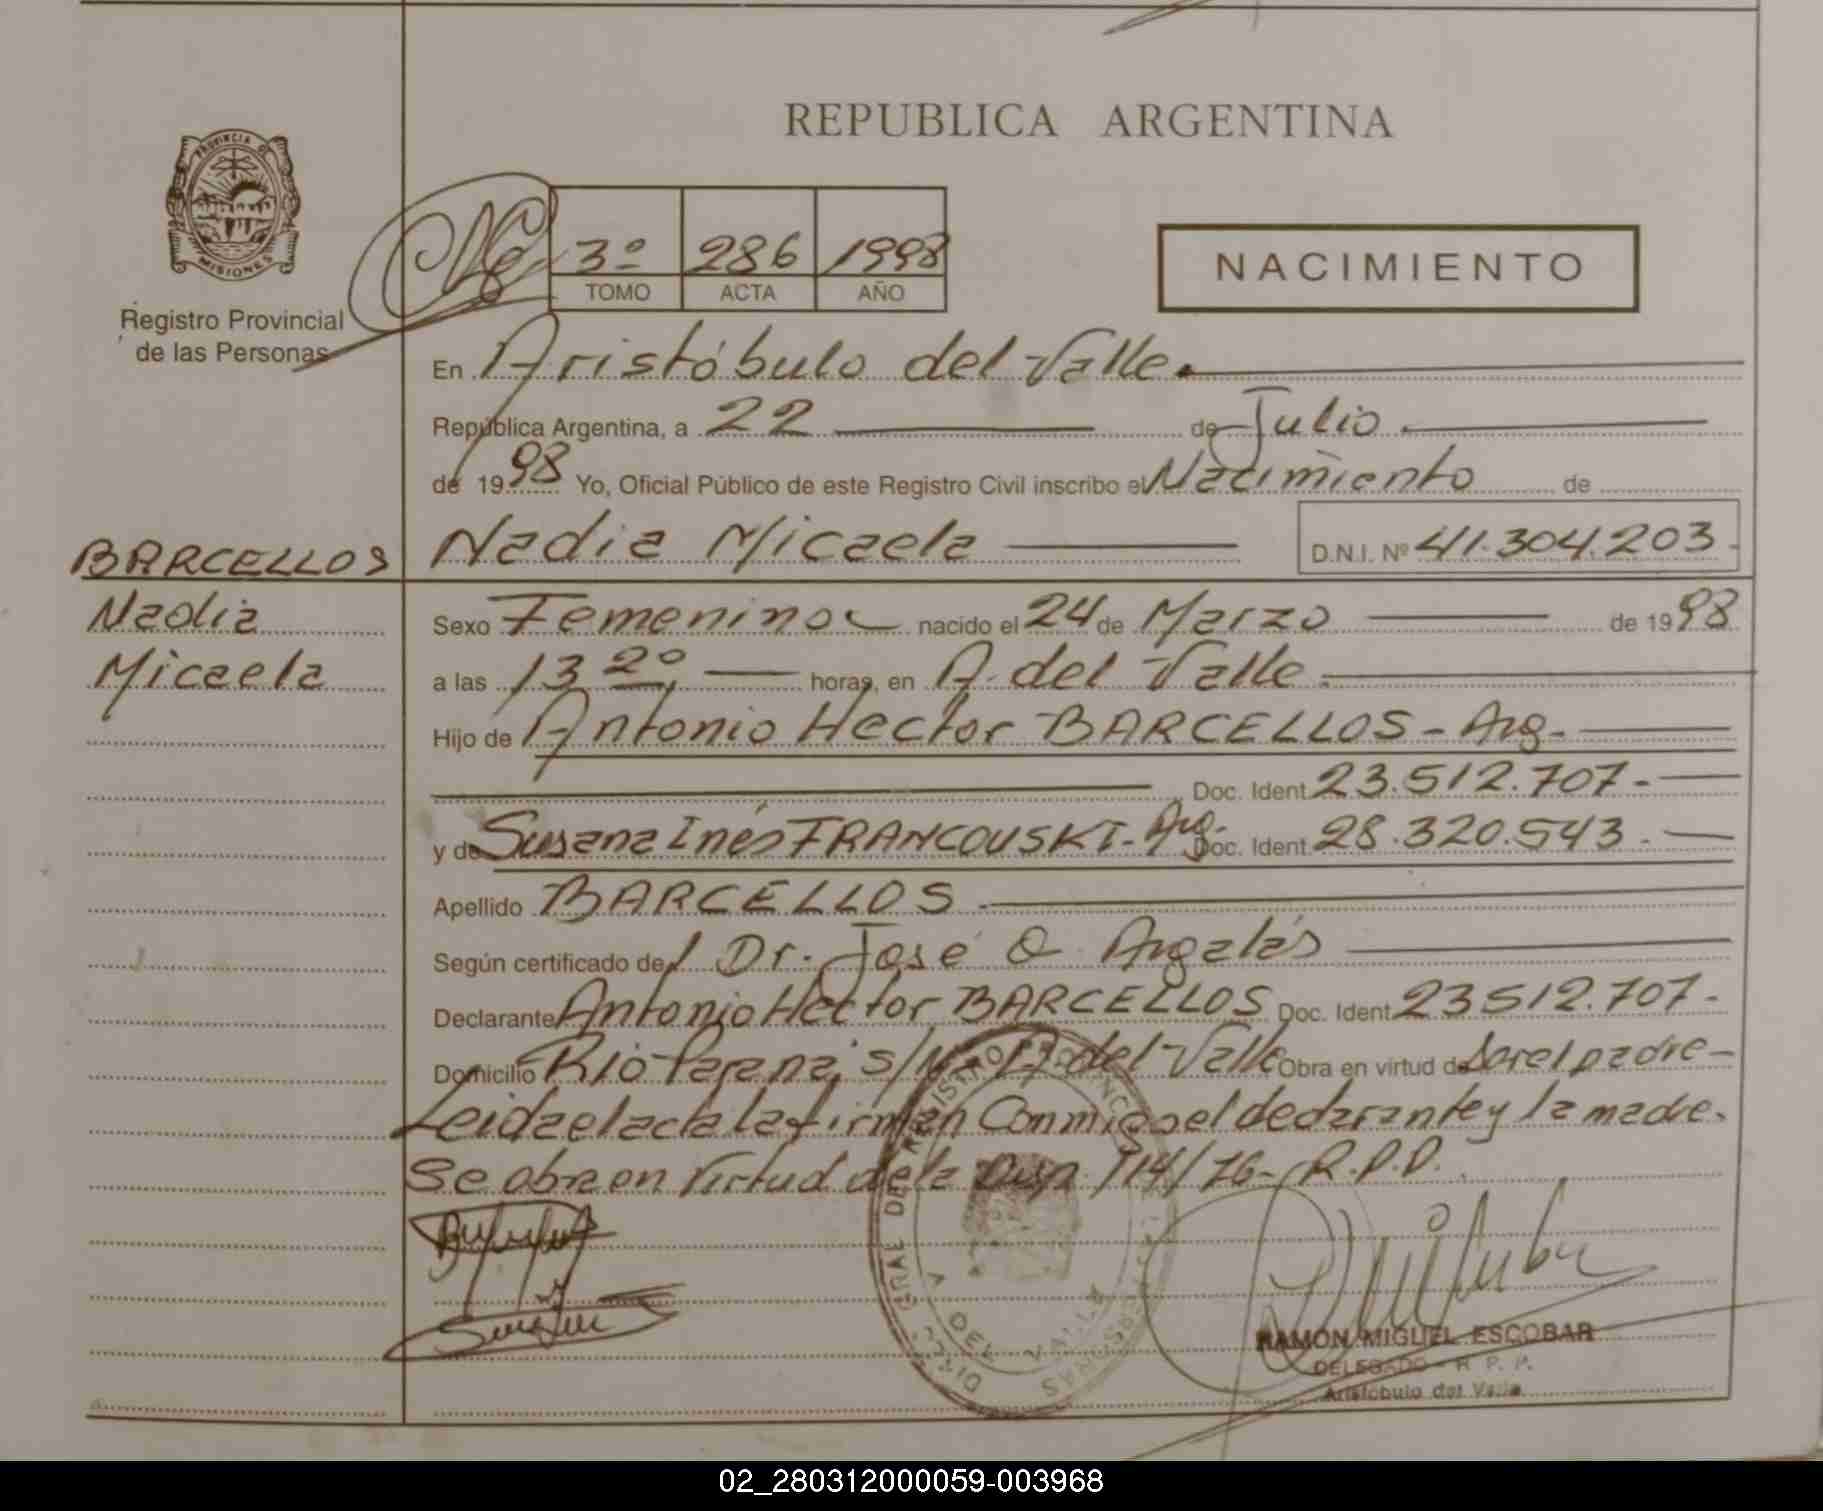 REPUBLICA ARGENTINA
PROVINCIA D
MISIONES
Registro Provincial
de las Personas
3º 286 1998
TOMO ACTA AÑO
NACIMIENTO
En Aristóbulo del Valle.
República Argentina, a 22 de Julio.
de 1998 Yo, Oficial Público de este Registro Civil inscribo el Nacimiento de
BARCELLOS
Nadia
Micaela
Nadia Micaela D.N.I. Nº 41.304.203.
Sexo Femenino nacido el 24 de Marzo de 1998
a las 13 20 horas, en A. del Valle.
Hijo de Antonio Hector BARCELLOS - Arg.
Doc. Ident. 23.512.707.-
y de Susana Inés FRANCOUSKI - Arg. Doc. Ident. 28.320.543.
Apellido BARCELLOS.
Según certificado de Dr. José O Argalás
Declarante Antonio Hector BARCELLOS Doc. Ident. 23512.707.
Domicilio Río Paraná s/Nº A. del Valle Obra en virtud de ser el padre-
Leida el acta la firman Conmigo el declarante y la madre.
Se obra en Virtud de la Disp. 114/76- R.P.P.
DEL VALLE
RAMON MIGUEL ESCOBAR
DELEGADO - R. P. P.
Aristóbulo del Valle
02_280312000059-003968